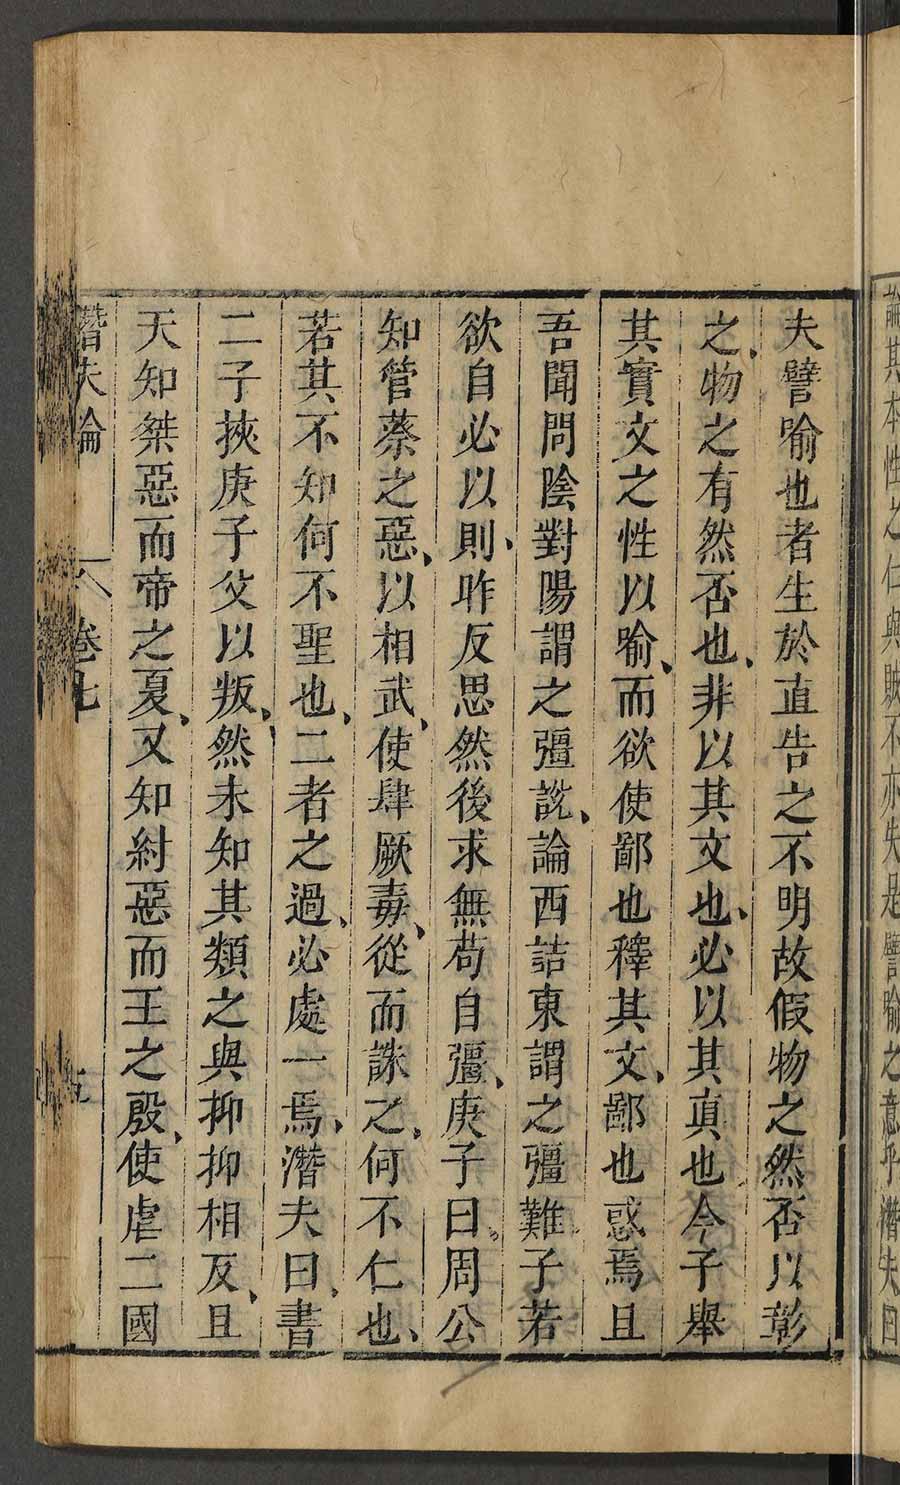 論其本性之仁與賊不亦失是譬喻之意乎潛夫曰
夫譬喻也者生於直告之不明故假物之然否以彰
之、物之有然否也、非以其文也、必以其真也今子舉
其實文之性以喻、而欲使鄙也釋其文、鄙也惑焉且
吾聞問陰對陽謂之彊說、論西詰東謂之彊難子若
欲自必以則、昨反思然後求無苟自彊、庚子曰。周公
知管蔡之惡、以相武、使肆厥毒、從而誅之、何不仁也、
若其不知何不聖也、二者之過、必處一焉、潛夫曰、書
二子挾庚子父以叛、然未知其類之與抑抑相反、且
天知桀惡而帝之夏、又知紂惡而王之殷、使虐二國
潛夫論
卷七